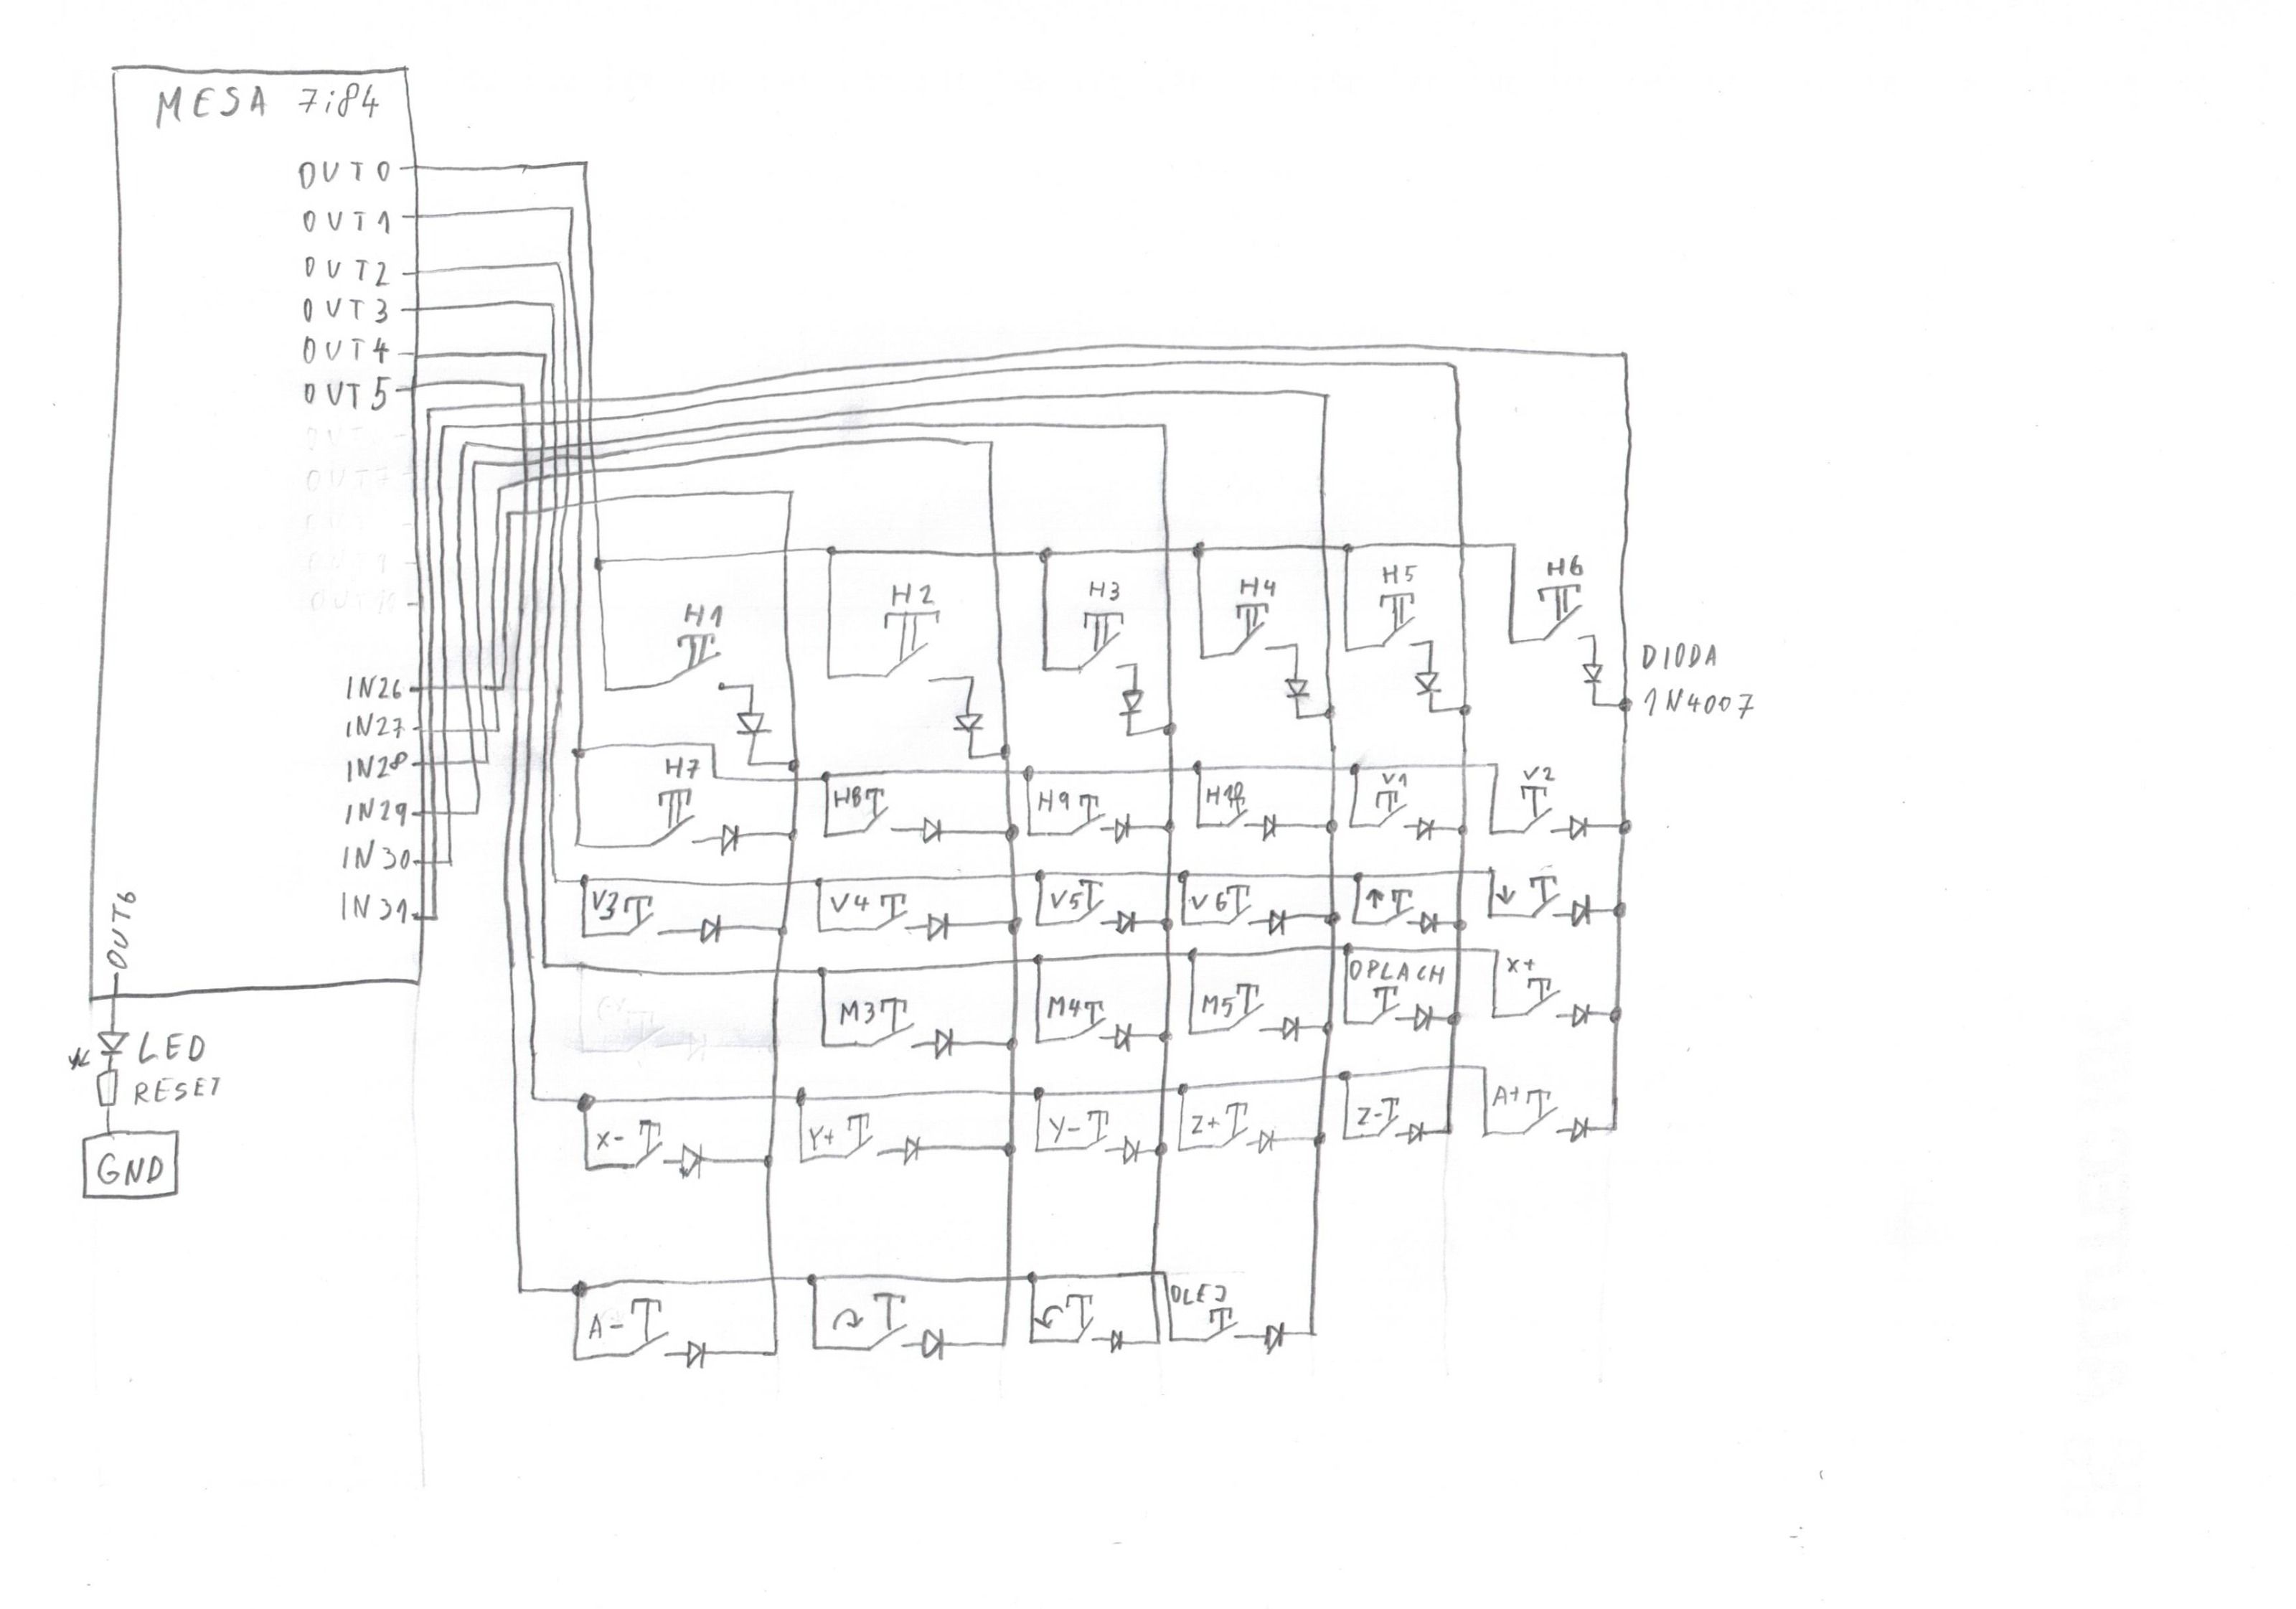 MESA 7i84
OUT0
OUT1
OUT2
OUT3
OUT4
OUT5
OUT7
IN26
IN27
IN28
IN29
IN30
IN31
OUT6
LED
RESET
GND
H1
H2
H3
H4
H5
H6
DIODA
1N4007
H7
H8
H9
H10
V1
V2
V3
V4
V5
V6
↑
↓
M3
M4
M5
OPLACH
X+
X-
Y+
Y-
Z+
Z-
A+
A-
OLEJ